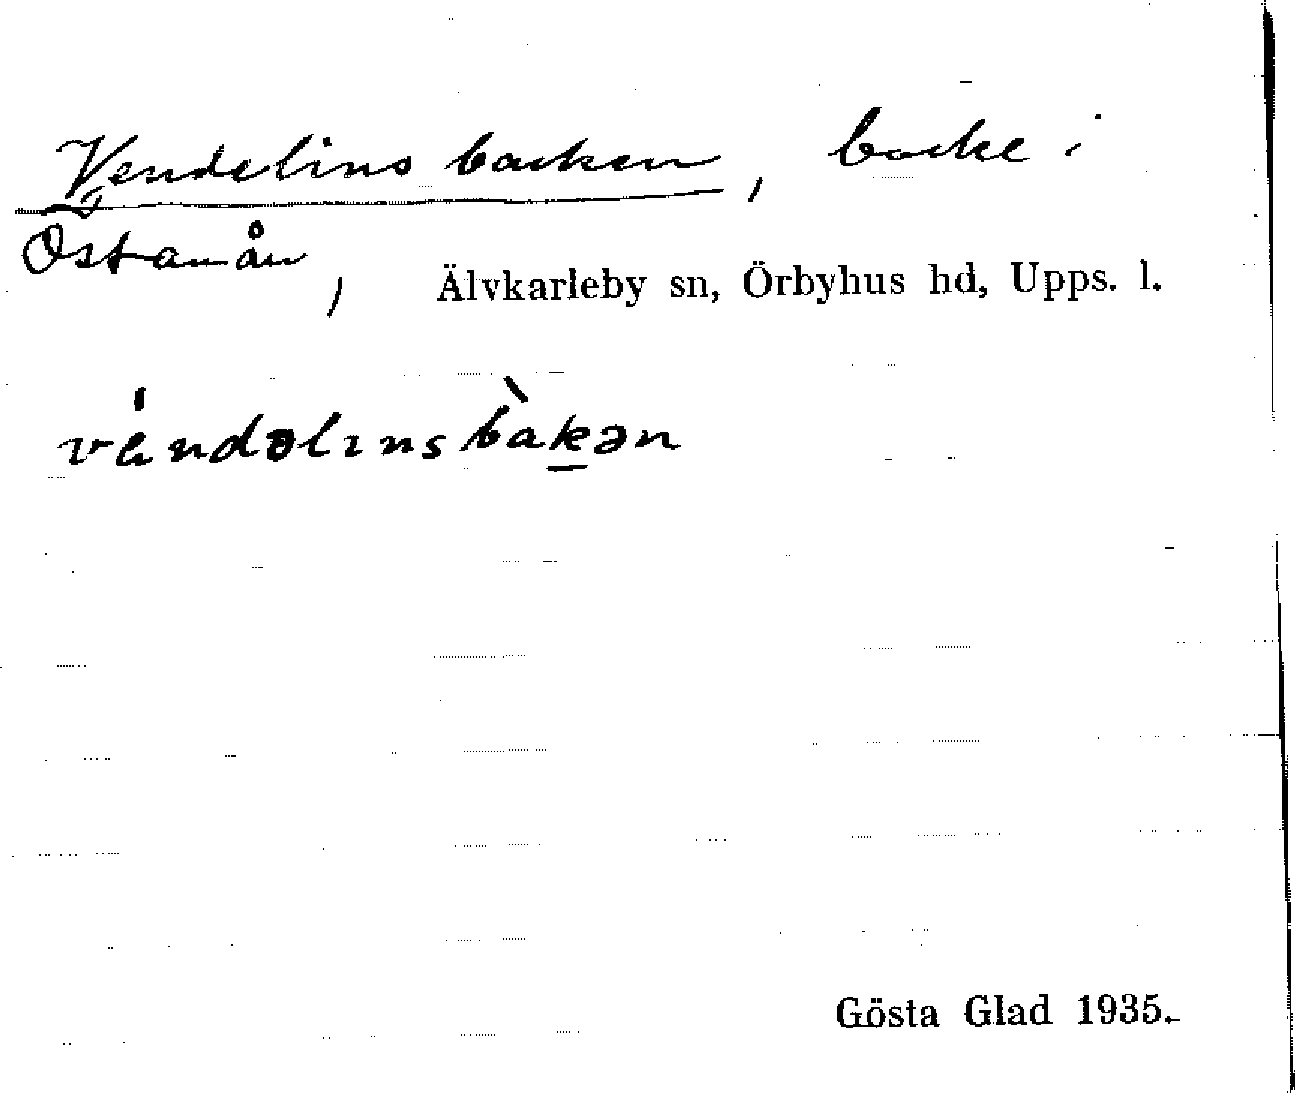 Vendelinsbacken, backe i
Östanån,
Älvkarleby sn, Örbyhus hd, Upps. l.
vä́ndəlɪnsbàk̠ən
Gösta Glad 1935.